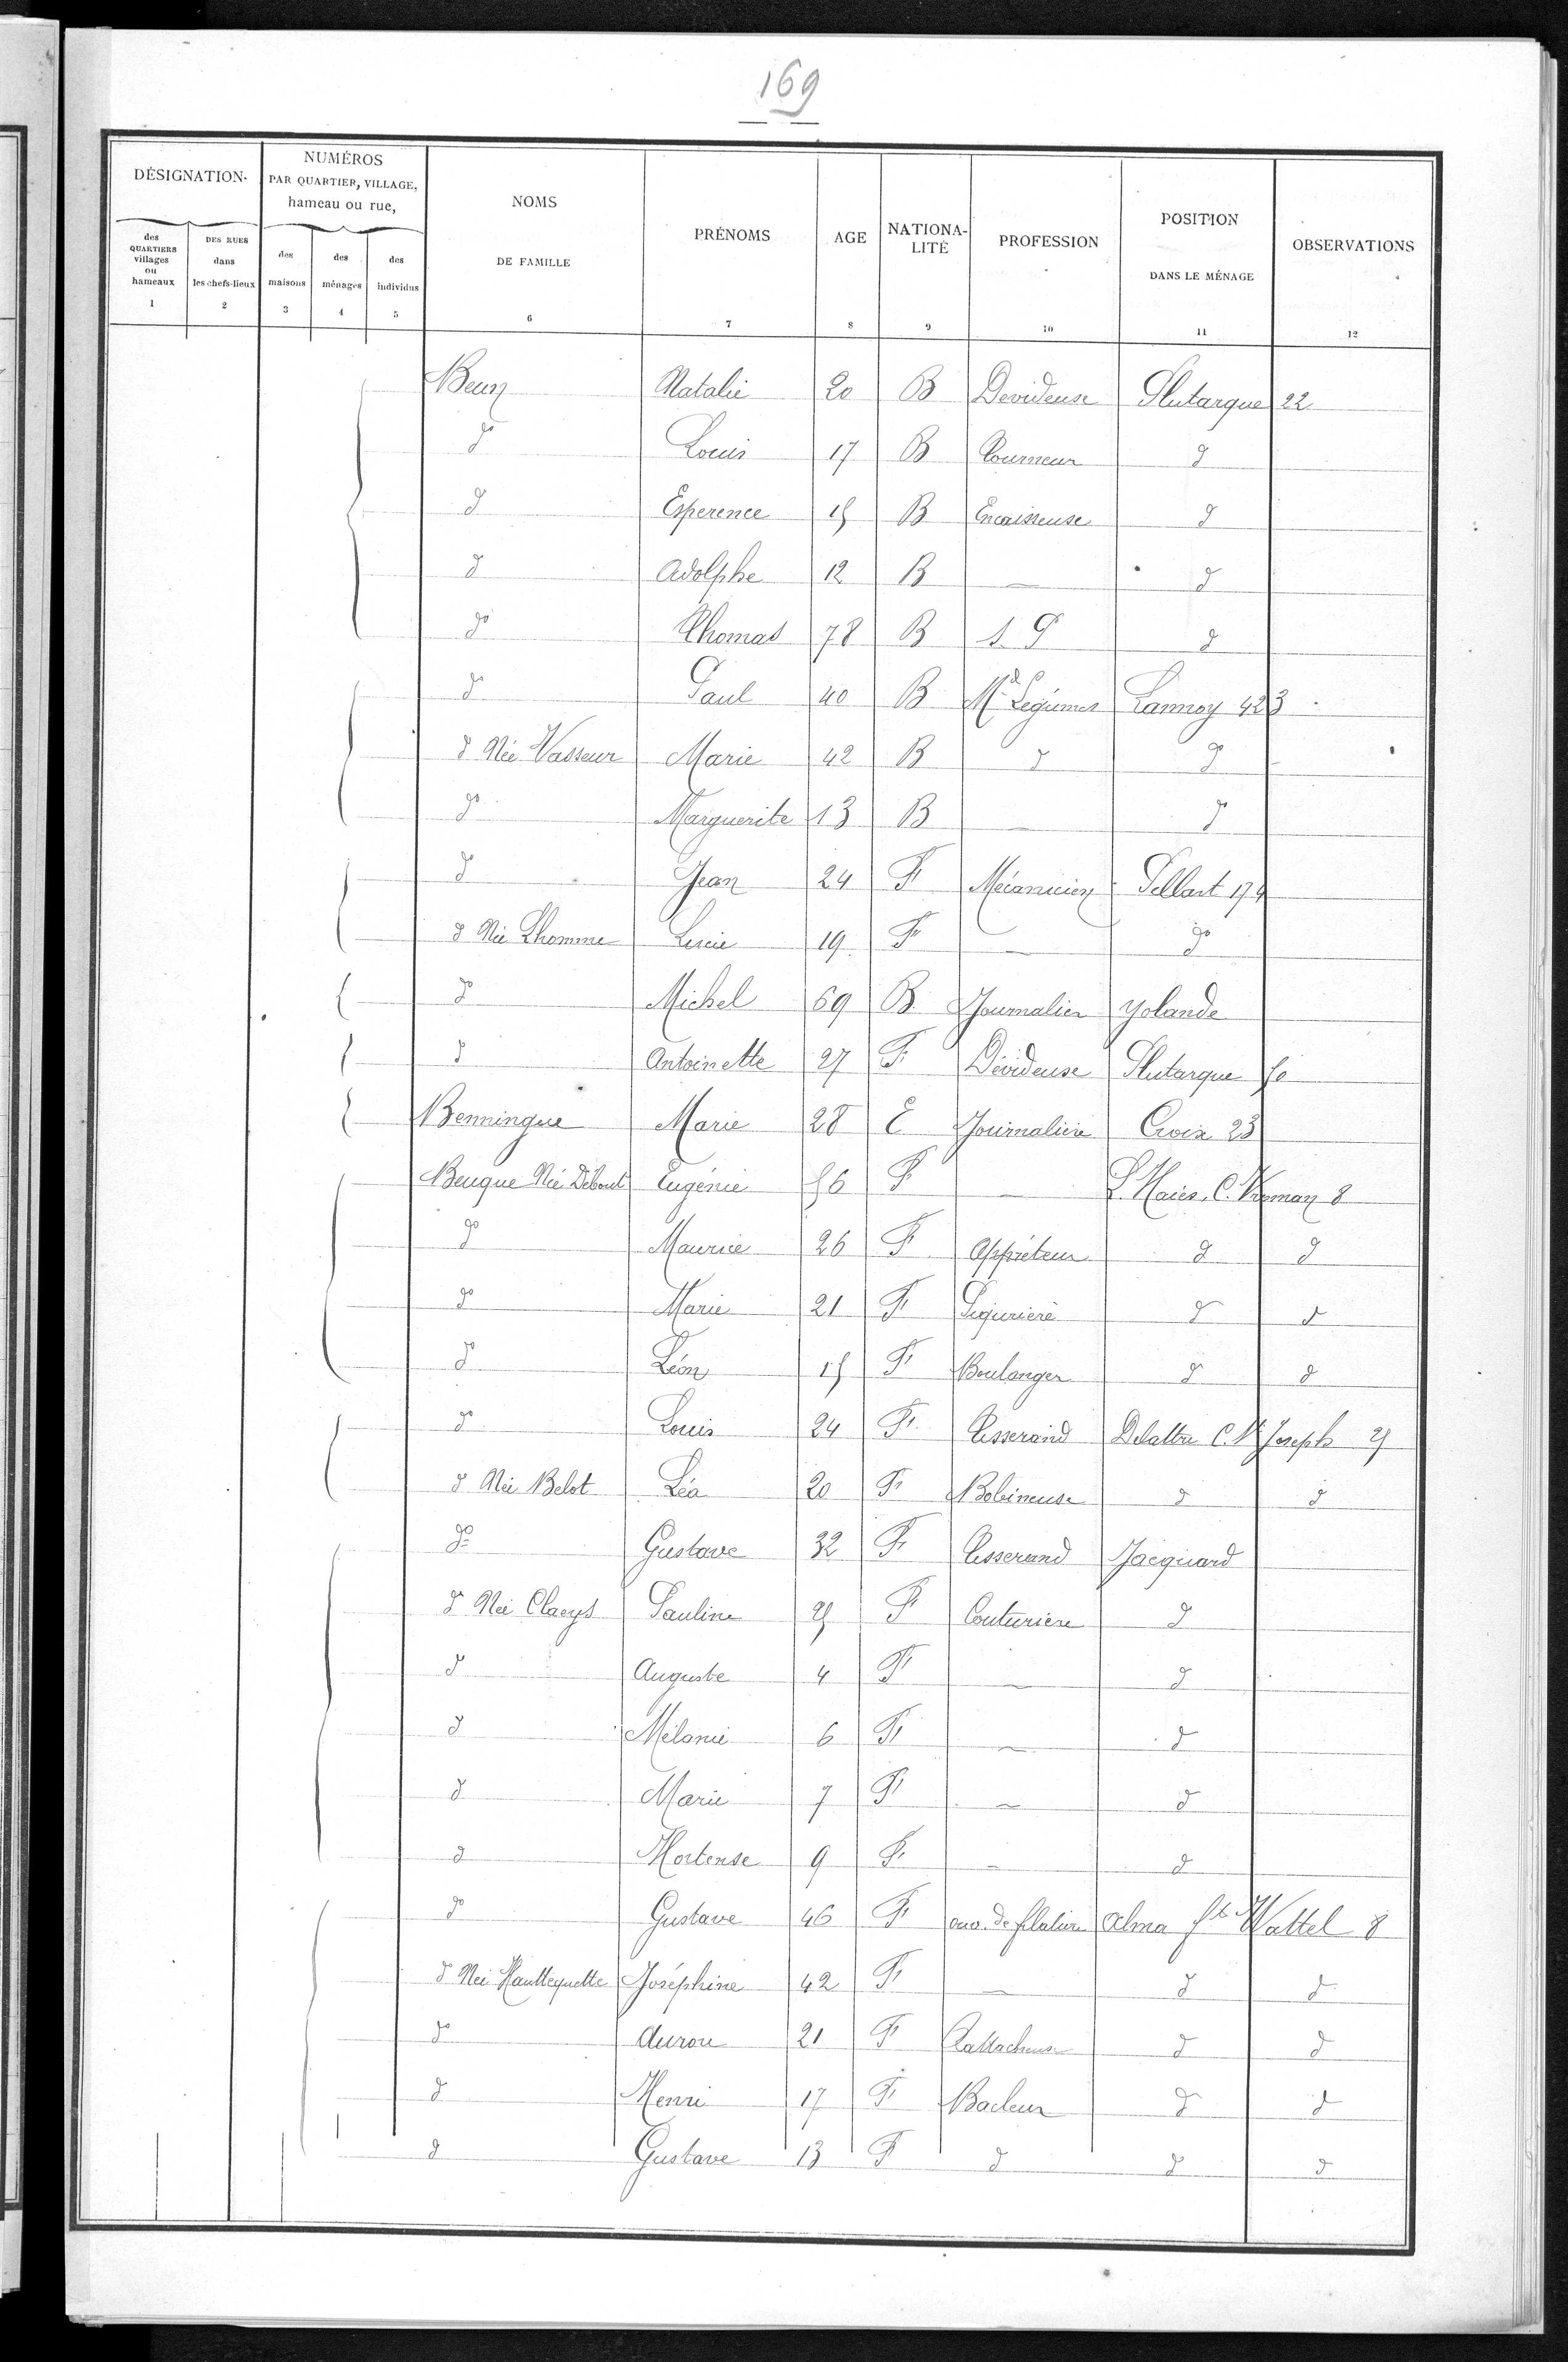 169
DÉSIGNATION.
NUMÉROS
PAR QUARTIER, VILLAGE,
hameau ou rue,
NOMS
DE FAMILLE
PRÉNOMS
AGE
NATIONA-
LITÉ
PROFESSION
POSITION
DANS LE MÉNAGE
OBSERVATIONS
des
QUARTIERS
villages
ou
hameaux
DES RUES
dans
les chefs-lieux
des
maisons
des
ménages
des
individus
1 2 3 4 5 6 7 8 9 10 11 12
Beun Natalie 20 B Devideuse Plutarque 22
do Louis 17 B Tourneur d
d Esperence 15 B Encaisseuse d
d Adolphe 12 B — d
do Thomas 78 B S. P d
do Paul 40 B Md Légumes Lannoy 423
d Née Vasseur Marie 42 B d do
do Marguerite 13 B — do
do Jean 24 F Mécanicien Pellart 174
d Née Lhomme Lucie 19 F — do
do Michel 69 B Journalier Yolande
d Antoinette 27 F Dévideuse Plutarque 50
Benningue Marie 28 E Journalière Croix 23
Beugue Née Débout Eugénie 56 F — L. Haies, C. Vroman 8
do Maurice 26 F Appréteur d d
do Marie 21 F Piqurière d d
do Léon 15 F Boulanger d d
do Louis 24 F Tisserand Delattre C. St Joseph 25
d Née Belot Léa 20 F Bobineuse d d
do Gustave 32 F Tisserand Jacquard
d Née Claeys Pauline 25 F Couturière d
d Auguste 4 F — d
d Mélanie 6 F — d
d Marie 7 F — d
d Hortense 9 F — d
do Gustave 46 F ouv. de filature Alma ft Wattel 8
d Née Joséphine 42 F — d d
do Aurore 21 F Rattacheuse d d
d Henri 17 F Bacleur d d
d Gustave 13 F d d d